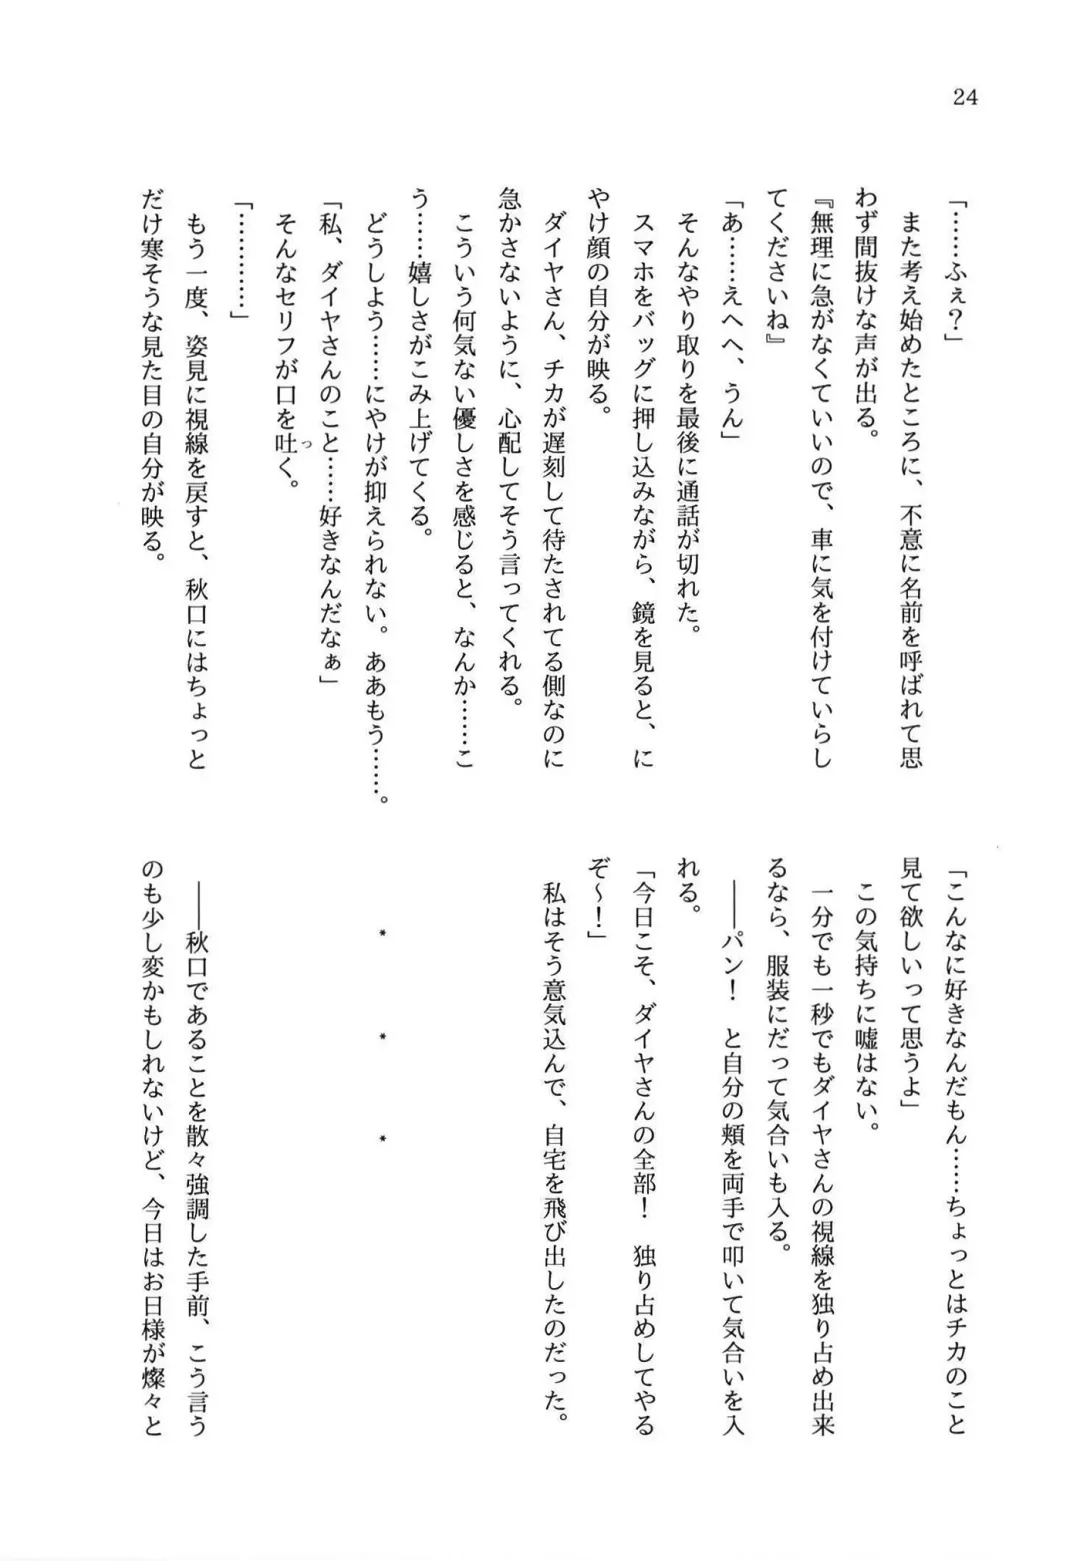 24
「……ふぇ？」
　また考え始めたところに、不意に名前を呼ばれて思
わず間抜けな声が出る。
『無理に急がなくていいので、車に気を付けていらし
てくださいね』
「あ……えへへ、うん」
　そんなやり取りを最後に通話が切れた。
　スマホをバッグに押し込みながら、鏡を見ると、に
やけ顔の自分が映る。
　ダイヤさん、チカが遅刻して待たされてる側なのに
急かさないように、心配してそう言ってくれる。
　こういう何気ない優しさを感じると、なんか……こ
う……嬉しさがこみ上げてくる。
　どうしよう……にやけが抑えられない。ああもう……。
「私、ダイヤさんのこと……好きなんだなぁ」
　そんなセリフが口を吐っく。
「…………」
　もう一度、姿見に視線を戻すと、秋口にはちょっと
だけ寒そうな見た目の自分が映る。
「こんなに好きなんだもん……ちょっとはチカのこと
見て欲しいって思うよ」
　この気持ちに嘘はない。
　一分でも一秒でもダイヤさんの視線を独り占め出来
るなら、服装にだって気合いも入る。
　――パン！　と自分の頬を両手で叩いて気合いを入
れる。
「今日こそ、ダイヤさんの全部！　独り占めしてやる
ぞ～！」
　私はそう意気込んで、自宅を飛び出したのだった。
＊　＊　＊
　――秋口であることを散々強調した手前、こう言う
のも少し変かもしれないけど、今日はお日様が燦々と